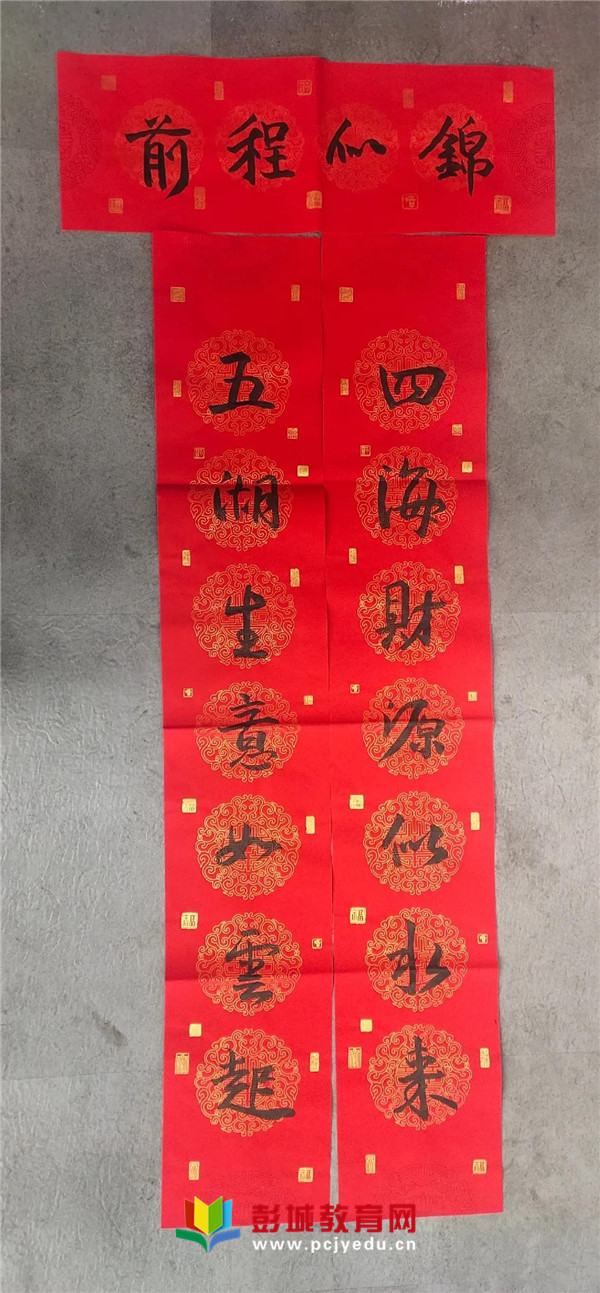 前程似錦
五湖生意如雲起
四海財源似水来
彭城教育网
www.pcjyedu.cn